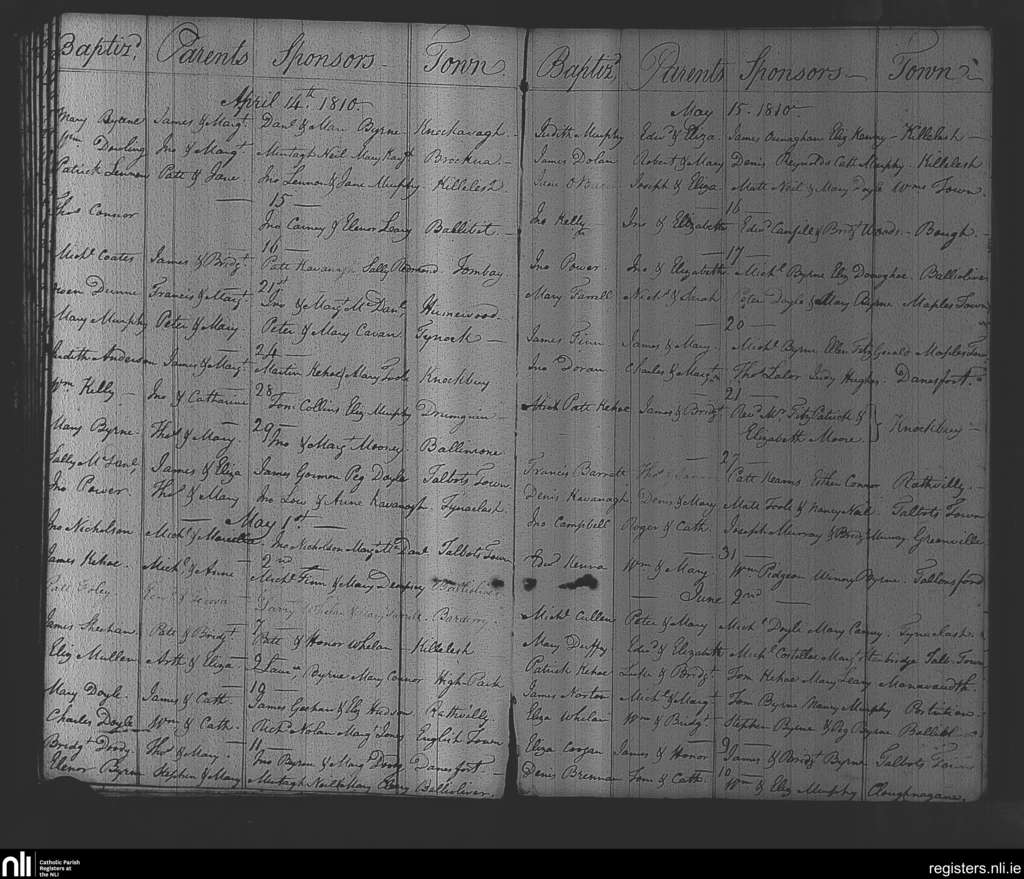 Baptizd. Parents Sponsors Town.
April 14th. 1810
Mary Byrne James & Margt. Danl & Mary Byrne Knockavagh.
Wm Dowling Jno & Margt. Murtagh Neil Mary Brockna.
Patrick Lennon Patt & Jane. Jno Lennon & Jane Murphy Killelesh.
15
Thos Connor
Jno Carney & Elenor Leary Ballibit.
16
Michl. Coates James & Bridgt. Patt Kavanagh Sally Redmond Tombay.
21st
Dunne Francis & Margt. Jno & Margt McDanl, Humewood.
Mary Murphy Peter & Mary. Peter & Mary Cavan Tynock
24
Judith Anderson James & Margt. Martin Kehoe & Mary Toole Knockbuy
28
Wm Kelly Jno & Catharine Tom Collins Eliz Murphy Drumguin
29
Mary Byrne Thos & Mary Jno & Margt Mooney. Ballinone
Sally McDanl, James & Eliza James Gormon Peg Doyle Talbots Town.
Jno Power Thos & Mary Jno Low & Anne Kavanagh. Tynaclash.
May 1st
Jno Nicholson Michl & Jno Nicholson Margt McDanl Talbots Town
2nd
James Kehoe. Michl & Anne Michl Finn & Mary Dempsey
Patt Foley Barderry
7
James Sheehan Patt & Bridgt Patt & Honor Whelan Killelesh
9
Eliz Mullen Arth & Eliza Byrne Mary Connor High-Park
10
Mary Doyle. James & Cath. James & Eliz Hudson Rathvilly.
Charles Doyle Wm & Cath. Richd Nolan Margt Jones English Town
11
Bridgt Doody Thos & Mary Jno Byrne & Margt Danesfort.
Elenor Byrne Stephen & Mary Murtagh Neil & Mary Ballioliver.
Baptizd Parents Sponsors Town
May 15. 1810
Judith Murphy Edwd & Eliza. James Eliz Killelesh
James Dolan Robert & Mary Denis Reynolds Cath Murphy. Killelesh
Jane Joseph & Eliza Matt Neil & Mary Doyle Wms Town
16
Jno Kelly Jno & Elizabeth Edwd & Bridgt Woods Bough.
17
Jno Power. Jno & Elizabeth Michl Byrne Eliz Donoghoe. Ballioliver
Mary Farrell Nichs & Sarah Peter Doyle & Mary Byrne Maples Town
20
James Finn James & Mary. Michl Byrne Ellen FitzGerald Maples Town
Jno Doran Charles & Margt, Thos Lalor Judy Hughes. Danesfort.
21
Mich Patt Kehoe James & Bridgt Revd. Mr. FitzPatrick &
Elizabeth Moore. } Knockbuy
27
Francis Barratt Thos Patt Kearns Esther Connor Rathvilly.
Denis Kavanagh Denis & Mary Matt Toole & Nancy Neil. Talbots Town
Jno Campbell Roger & Cath. Joseph Murray & Bridgt Murray Greenville
31
Edwd Kenna Wm & Mary Wm Pidgeon Winny Byrne. Tallonsford
June 2nd
Michl Cullen Peter & Mary Michl Doyle Mary Canny. Tynaclash.
Mary Duffy Edwd & Elizabeth Michl Costelloe Margt Talb. Town
Patrick Kehoe Luke & Bridgt Tom Kehoe Mary Leary
James Norton Michl & Margt Tom Byrne Nancy Murphy
Eliza Whelan Wm & Bridgt Stephen Byrne & Peg Byrne Ballibit
9
Eliza Coogan James & Honor James & Bridgt Byrne Talbots Town
10
Denis Brennan Tom & Cath. Wm & Eliz Murphy Cloughnagane.
nli Catholic Parish
Registers at
the NLI
registers.nli.ie